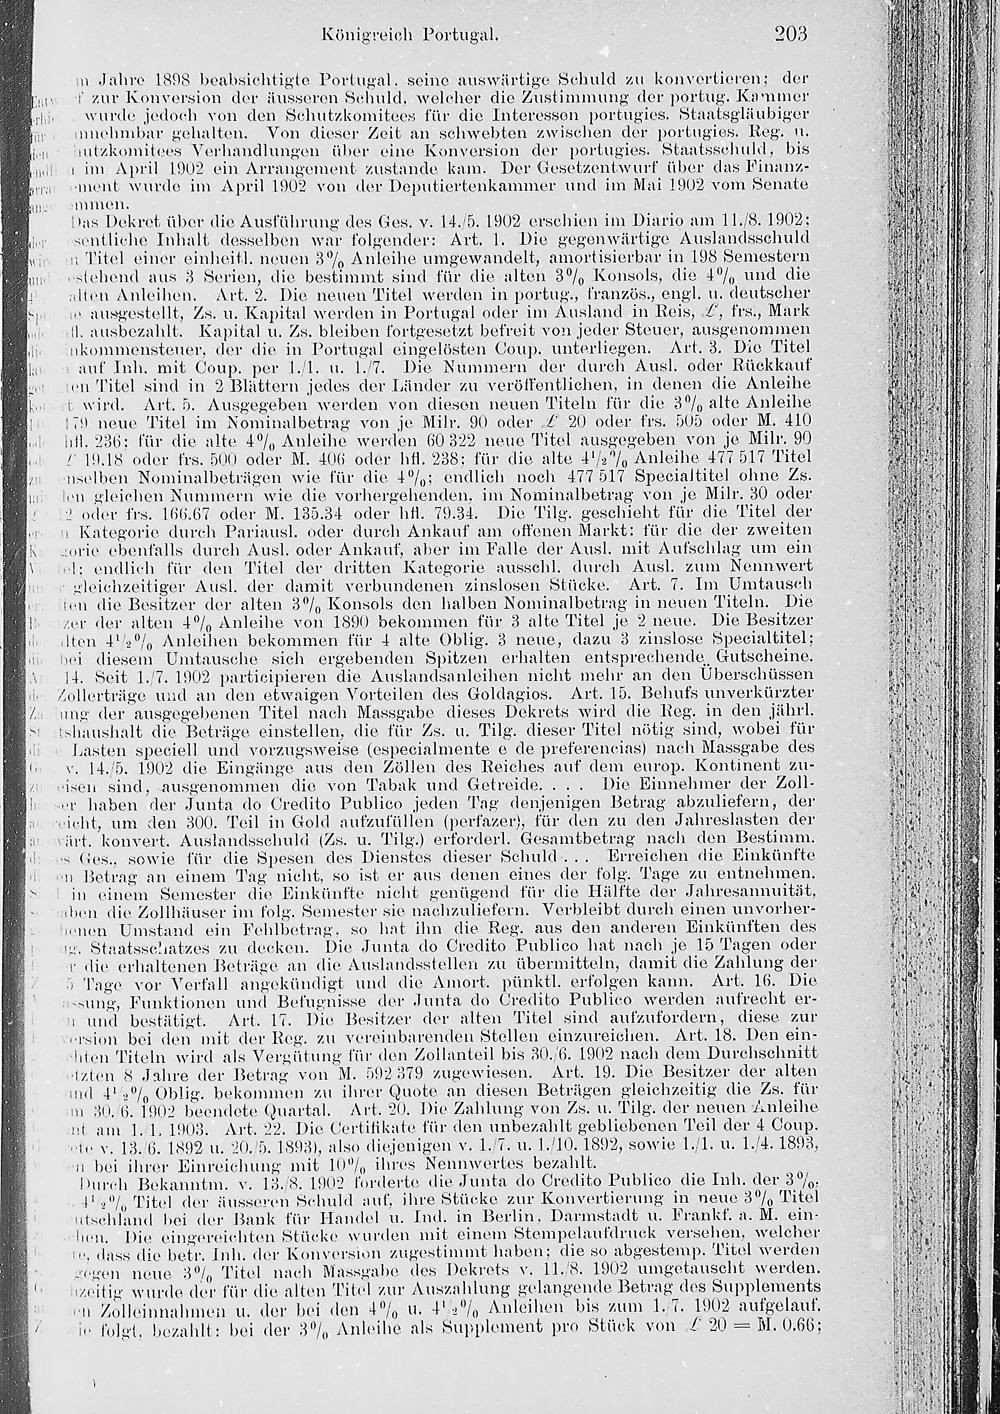 Königreich Portugal. 203
Jahre 1898 beabsichtigte Portugal, seine auswärtige Schuld zu konvertieren; der
zur Konversion der äusseren Schuld, welcher die Zustimmung der portug. Kammer
wurde jedoch von den Schutzkomitees für die Interessen portugies. Staatsgläubiger
nnehmbar gehalten. Von dieser Zeit an schwebten zwischen der portugies. Reg. u.
hutzkomitees Verhandlungen über eine Konversion der portugies. Staatsschuld, bis
im April 1902 ein Arrangement zustande kam. Der Gesetzentwurf über das Finanz-
ement wurde im April 1902 von der Deputiertenkammer und im Mai 1902 vom Senate
ommen.
Das Dekret über die Ausführung des Ges. v. 14./5. 1902 erschien im Diario am 11./8. 1902:
sentliche Inhalt desselben war folgender: Art. 1. Die gegenwärtige Auslandsschuld
n Titel einer einheitl. neuen 3% Anleihe umgewandelt, amortisierbar in 198 Semestern
estehend aus 3 Serien, die bestimmt sind für die alten 3% Konsols, die 4% und die
alten Anleihen. Art. 2. Die neuen Titel werden in portug., französ., engl. u. deutscher
he ausgestellt, Zs. u. Kapital werden in Portugal oder im Ausland in Reis, £, frs., Mark
fl. ausbezahlt. Kapital u. Zs. bleiben fortgesetzt befreit von jeder Steuer, ausgenommen
nkommensteuer, der die in Portugal eingelösten Coup. unterliegen. Art. 3. Die Titel
auf Inh. mit Coup. per 1./1. u. 1./7. Die Nummern der durch Ausl. oder Rückkauf
ten Titel sind in 2 Blättern jedes der Länder zu veröffentlichen, in denen die Anleihe
t wird. Art. 5. Ausgegeben werden von diesen neuen Titeln für die 3% alte Anleihe
179 neue Titel im Nominalbetrag von je Milr. 90 oder £ 20 oder frs. 505 oder M. 410
hfl. 236; für die alte 4% Anleihe werden 60 322 neue Titel ausgegeben von je Milr. 90
£ 19.18 oder frs. 500 oder M. 406 oder hfl. 238; für die alte 4½% Anleihe 477 517 Titel
nselben Nominalbeträgen wie für die 4%; endlich noch 477 517 Specialtitel ohne Zs.
den gleichen Nummern wie die vorhergehenden, im Nominalbetrag von je Milr. 30 oder
2 oder frs. 166.67 oder M. 135.34 oder hfl. 79.34. Die Tilg. geschieht für die Titel der
n Kategorie durch Pariausl. oder durch Ankauf am offenen Markt; für die der zweiten
gorie ebenfalls durch Ausl. oder Ankauf, aber im Falle der Ausl. mit Aufschlag um ein
el; endlich für den Titel der dritten Kategorie ausschl. durch Ausl. zum Nennwert
gleichzeitiger Ausl. der damit verbundenen zinslosen Stücke. Art. 7. Im Umtausch
ten die Besitzer der alten 3% Konsols den halben Nominalbetrag in neuen Titeln. Die
zer der alten 4% Anleihe von 1890 bekommen für 3 alte Titel je 2 neue. Die Besitzer
alten 4½% Anleihen bekommen für 4 alte Oblig. 3 neue, dazu 3 zinslose Specialtitel;
bei diesem Umtausche sich ergebenden Spitzen erhalten entsprechende Gutscheine.
14. Seit 1./7. 1902 participieren die Auslandsanleihen nicht mehr an den Überschüssen
Zollerträge und an den etwaigen Vorteilen des Goldagios. Art. 15. Behufs unverkürzter
lung der ausgegebenen Titel nach Massgabe dieses Dekrets wird die Reg. in den jährl.
tshaushalt die Beträge einstellen, die für Zs. u. Tilg. dieser Titel nötig sind, wobei für
Lasten speciell und vorzugsweise (especialmente e de preferencias) nach Massgabe des
v. 14./5. 1902 die Eingänge aus den Zöllen des Reiches auf dem europ. Kontinent zu-
eisen sind, ausgenommen die von Tabak und Getreide. . . . Die Einnehmer der Zoll-
er haben der Junta do Credito Publico jeden Tag denjenigen Betrag abzuliefern, der
eicht, um den 300. Teil in Gold aufzufüllen (perfazer), für den zu den Jahreslasten der
wärt. konvert. Auslandsschuld (Zs. u. Tilg.) erforderl. Gesamtbetrag nach den Bestimm.
es Ges., sowie für die Spesen des Dienstes dieser Schuld . . . Erreichen die Einkünfte
en Betrag an einem Tag nicht, so ist er aus denen eines der folg. Tage zu entnehmen.
in einem Semester die Einkünfte nicht genügend für die Hälfte der Jahresannuität,
aben die Zollhäuser im folg. Semester sie nachzuliefern. Verbleibt durch einen unvorher-
henen Umstand ein Fehlbetrag, so hat ihn die Reg. aus den anderen Einkünften des
ug. Staatsschatzes zu decken. Die Junta do Credito Publico hat nach je 15 Tagen oder
r die erhaltenen Beträge an die Auslandsstellen zu übermitteln, damit die Zahlung der
5 Tage vor Verfall angekündigt und die Amort. pünktl. erfolgen kann. Art. 16. Die
assung, Funktionen und Befugnisse der Junta do Credito Publico werden aufrecht er-
n und bestätigt. Art. 17. Die Besitzer der alten Titel sind aufzufordern, diese zur
version bei den mit der Reg. zu vereinbarenden Stellen einzureichen. Art. 18. Den ein-
hten Titeln wird als Vergütung für den Zollanteil bis 30./6. 1902 nach dem Durchschnitt
etzten 8 Jahre der Betrag von M. 592 379 zugewiesen. Art. 19. Die Besitzer der alten
und 4½% Oblig. bekommen zu ihrer Quote an diesen Beträgen gleichzeitig die Zs. für
m 30./6. 1902 beendete Quartal. Art. 20. Die Zahlung von Zs. u. Tilg. der neuen Anleihe
nt am 1./1. 1903. Art. 22. Die Certifikate für den unbezahlt gebliebenen Teil der 4 Coup.
ete v. 13./6. 1892 u. 20./5. 1893), also diejenigen v. 1./7. u. 1./10. 1892, sowie 1./1. u. 1./4. 1893,
en bei ihrer Einreichung mit 10% ihres Nennwertes bezahlt.
Durch Bekanntm. v. 13./8. 1902 forderte die Junta do Credito Publico die Inh. der 3%,
4½% Titel der äusseren Schuld auf, ihre Stücke zur Konvertierung in neue 3% Titel
utschland bei der Bank für Handel u. Ind. in Berlin, Darmstadt u. Frankf. a. M. ein-
hen. Die eingereichten Stücke wurden mit einem Stempelaufdruck versehen, welcher
te, dass die betr. Inh. der Konversion zugestimmt haben; die so abgestemp. Titel werden
gegen neue 3% Titel nach Massgabe des Dekrets v. 11./8. 1902 umgetauscht werden.
hzeitig wurde der für die alten Titel zur Auszahlung gelangende Betrag des Supplements
en Zolleinnahmen u. der bei den 4% u. 4½% Anleihen bis zum 1./7. 1902 aufgelauf.
ie folgt, bezahlt: bei der 3% Anleihe als Supplement pro Stück von £ 20 = M. 0.66;